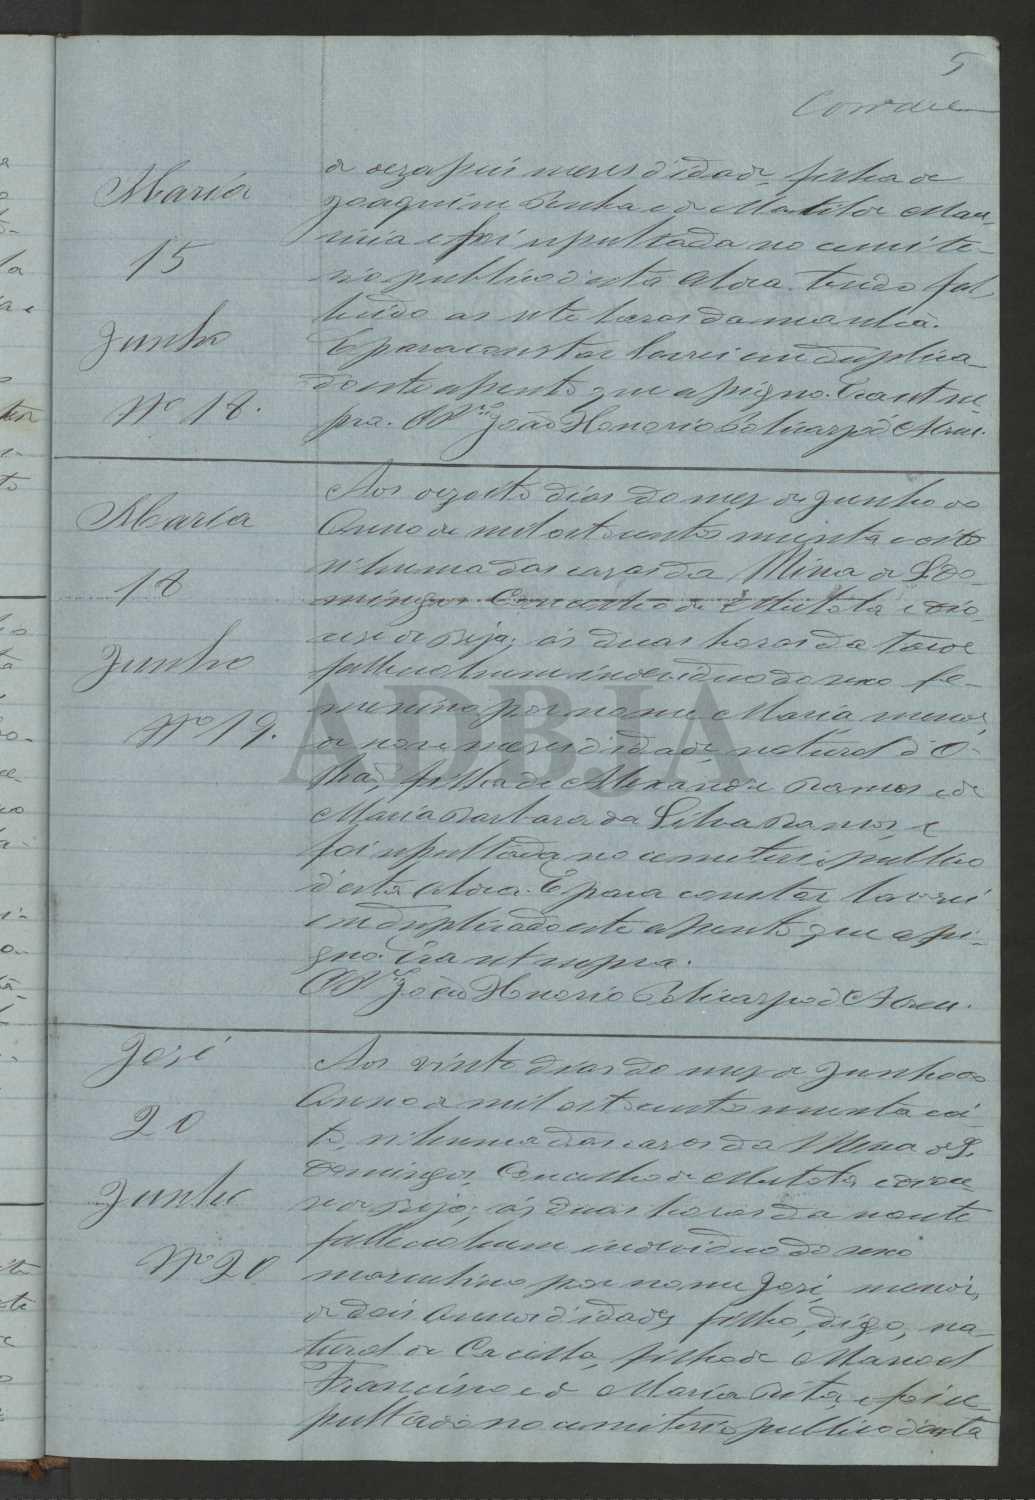 5
Maria
15
Junho
Nº 18.
de dezaseis mezes d'idade, filha de
Joaquim Penha e de Matilde Mau-
ricia e foi sepultada no cemite-
rio publico d'esta aldea tendo fal-
lecido as sete horas da manhã.
E para constar lavrei em duplica-
do este assento que assigno. Era ut su-
pra. O Pr.ʳ João Honorio Policarpo d'Abreu.
Maria
18
Junho
Nº 19.
Aos dezoito dias do mez de Junho do
Anno de mil oitocentos noventa e oito
n'huma das cazas da Mina de S. Do-
mingos Concelho de Mertola e dio-
cese de Beja, ás duas horas da tarde
falleceo hum individuo do sexo fe-
menino por nome Maria, menor,
de nove mezes d'idade, natural d'O-
lhão, filha de Alexandre Ramos e de
Maria Barbara da Silva Ramos, e
foi sepultada no cemiterio publico
d'esta aldea. E para constar lavrei
em duplicado este assento que assi-
gno. Era ut supra.
O Pr.ʳ João Honorio Policarpo d'Abreu.
José
20
Junho
Nº 20
Aos vinte dias do mez de Junho do
Anno de mil oitocentos noventa e oi-
to, n'huma das cazas da Mina de S.
Domingos, Concelho de Mertola e dioce-
se de Beja, ás duas horas da noute
falleceo hum individuo do sexo
masculino por nome José, menor,
de dois annos d'idade, filho, digo, na-
tural de Cacella, filho de Manoel
Francisco e de Maria Rita, e foi se-
pultado no cemiterio publico d'esta
ADBJA